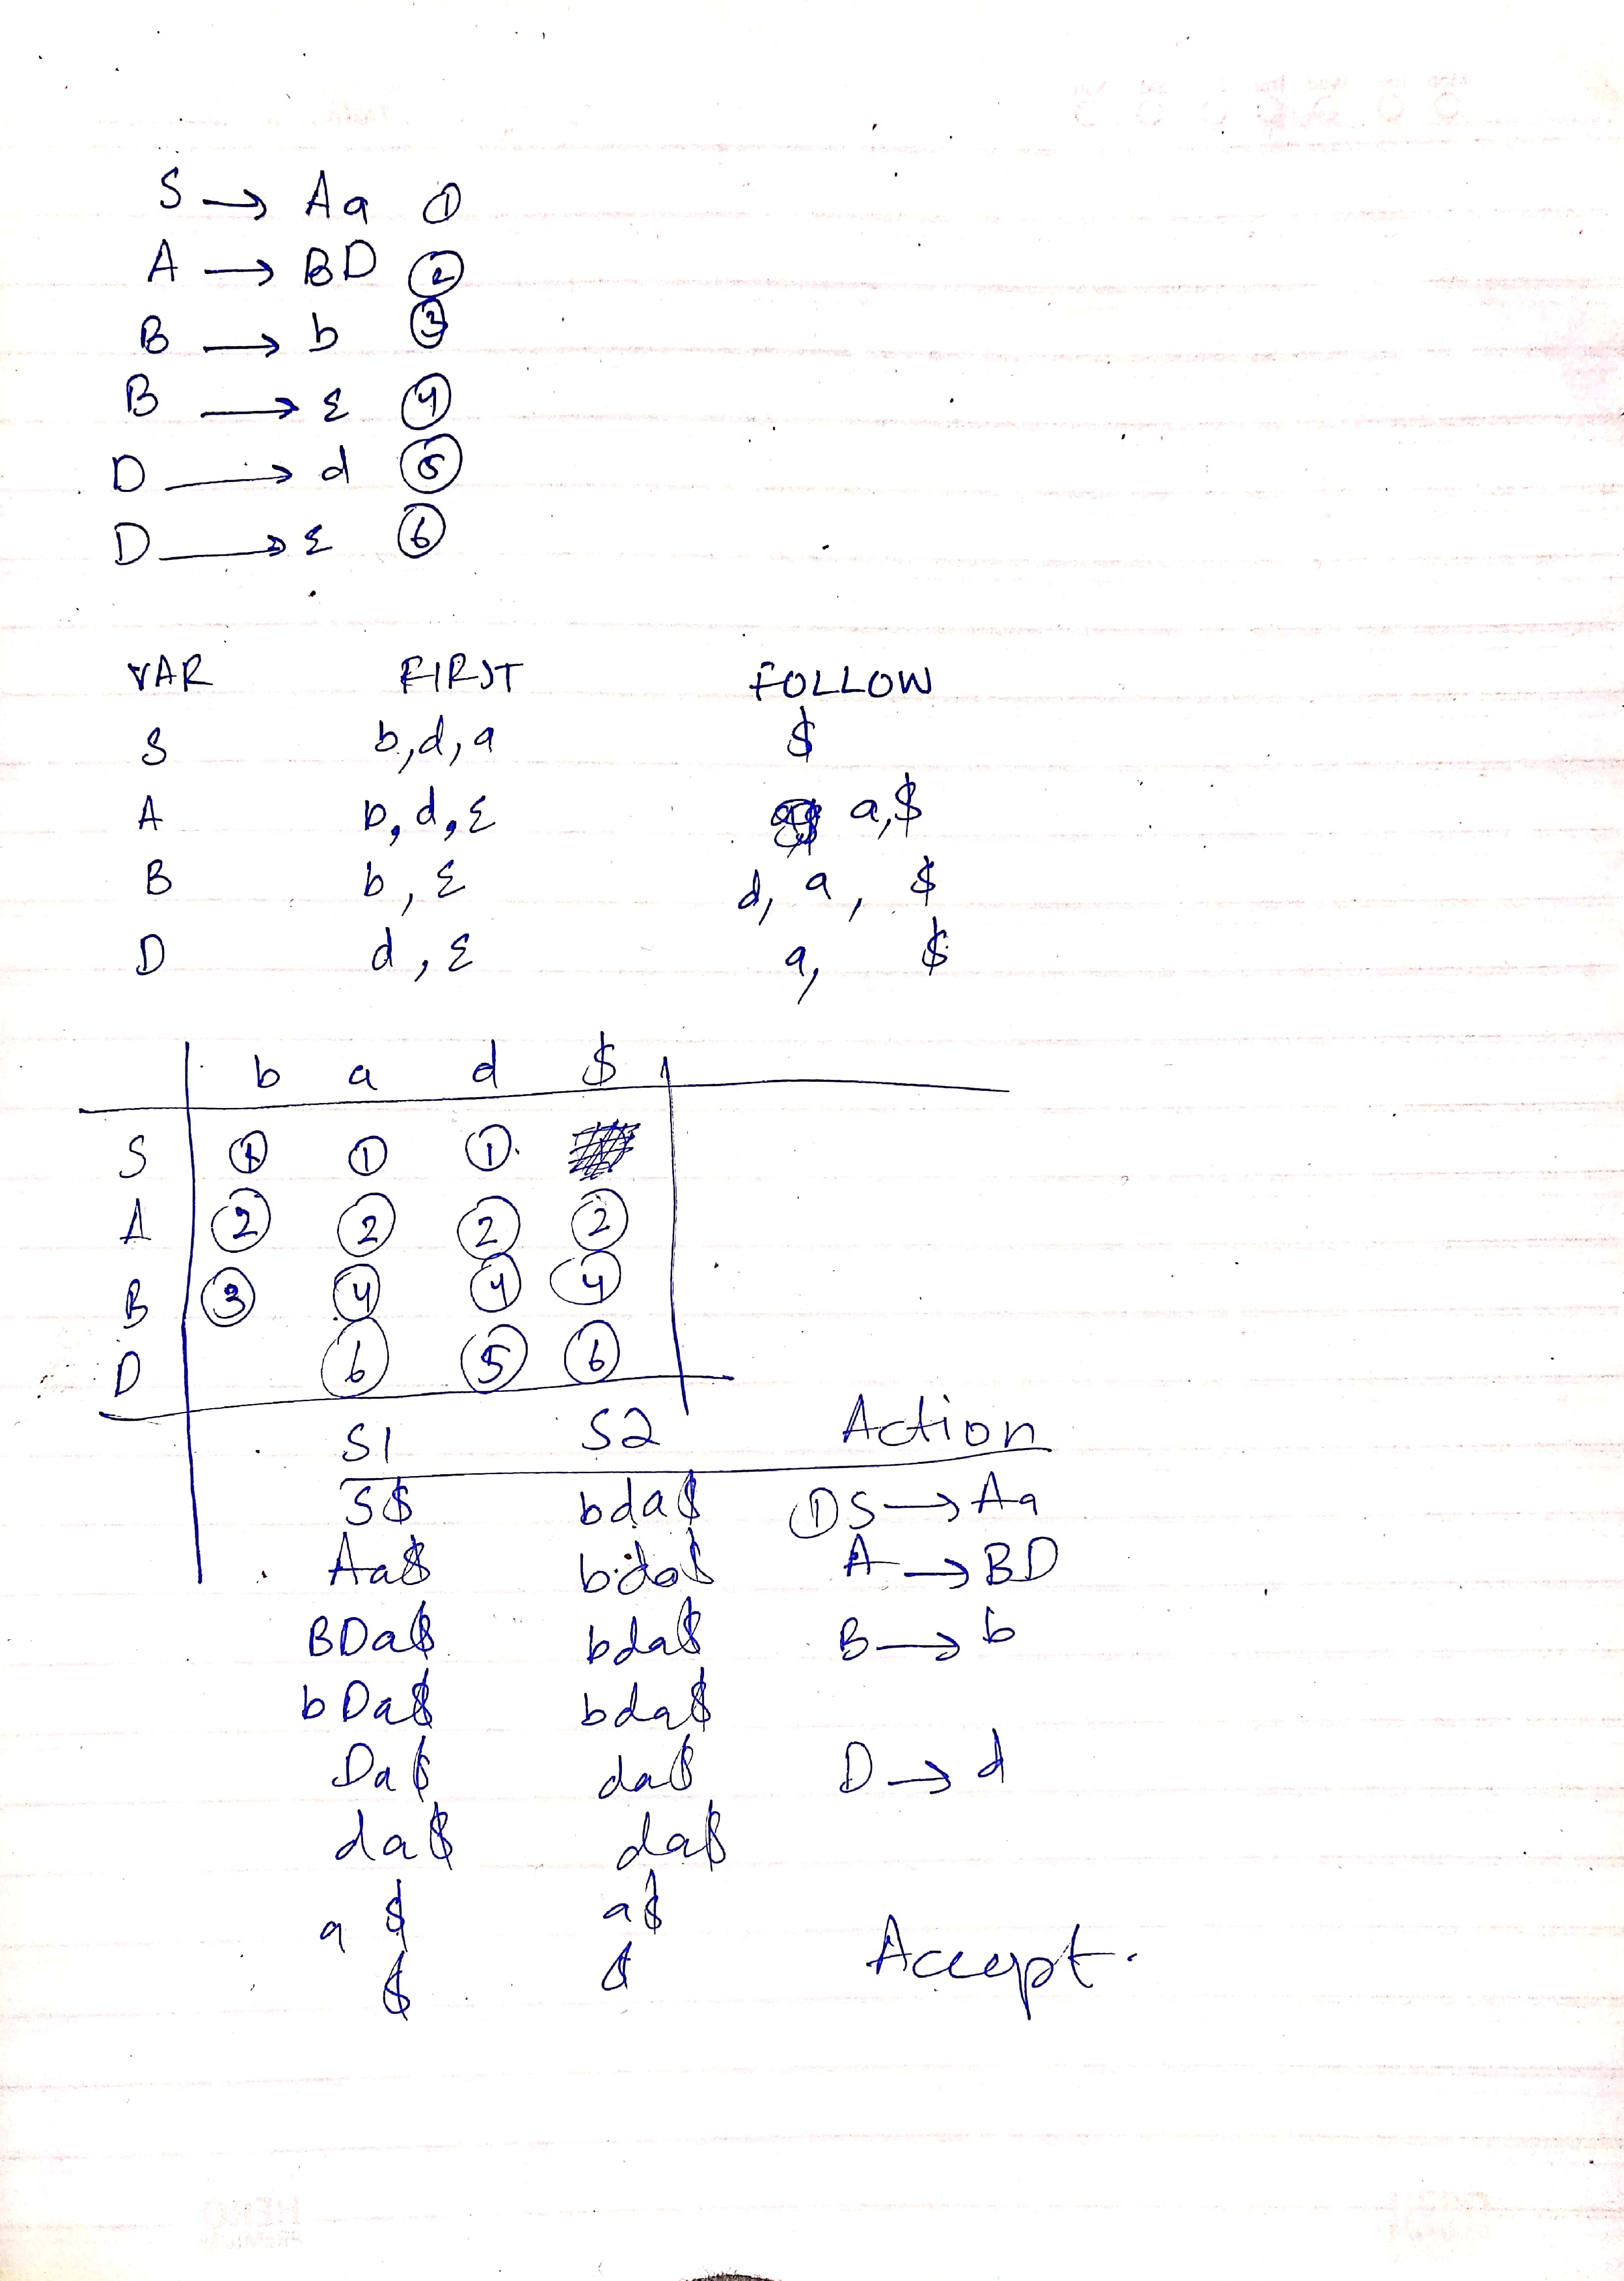 S → Aa ①
A → BD ②
B → b ③
B → ε ④
D → d ⑤
D → ε ⑥
VAR FIRST FOLLOW
S b,d,a $
A b,d,ε a,$
B b,ε d,a,$
D d,ε a,$
b a d $
S ① ① ①
A ② ② ② ②
B ③ ④ ④ ④
D ⑥ ⑤ ⑥
S1 S2 Action
S$ bda$ ① S → Aa
Aa$ bda$ A → BD
BDa$ bda$ B → b
bDa$ bda$
Da$ da$ D → d
da$ da$
a$ a$
$ $ Accept.